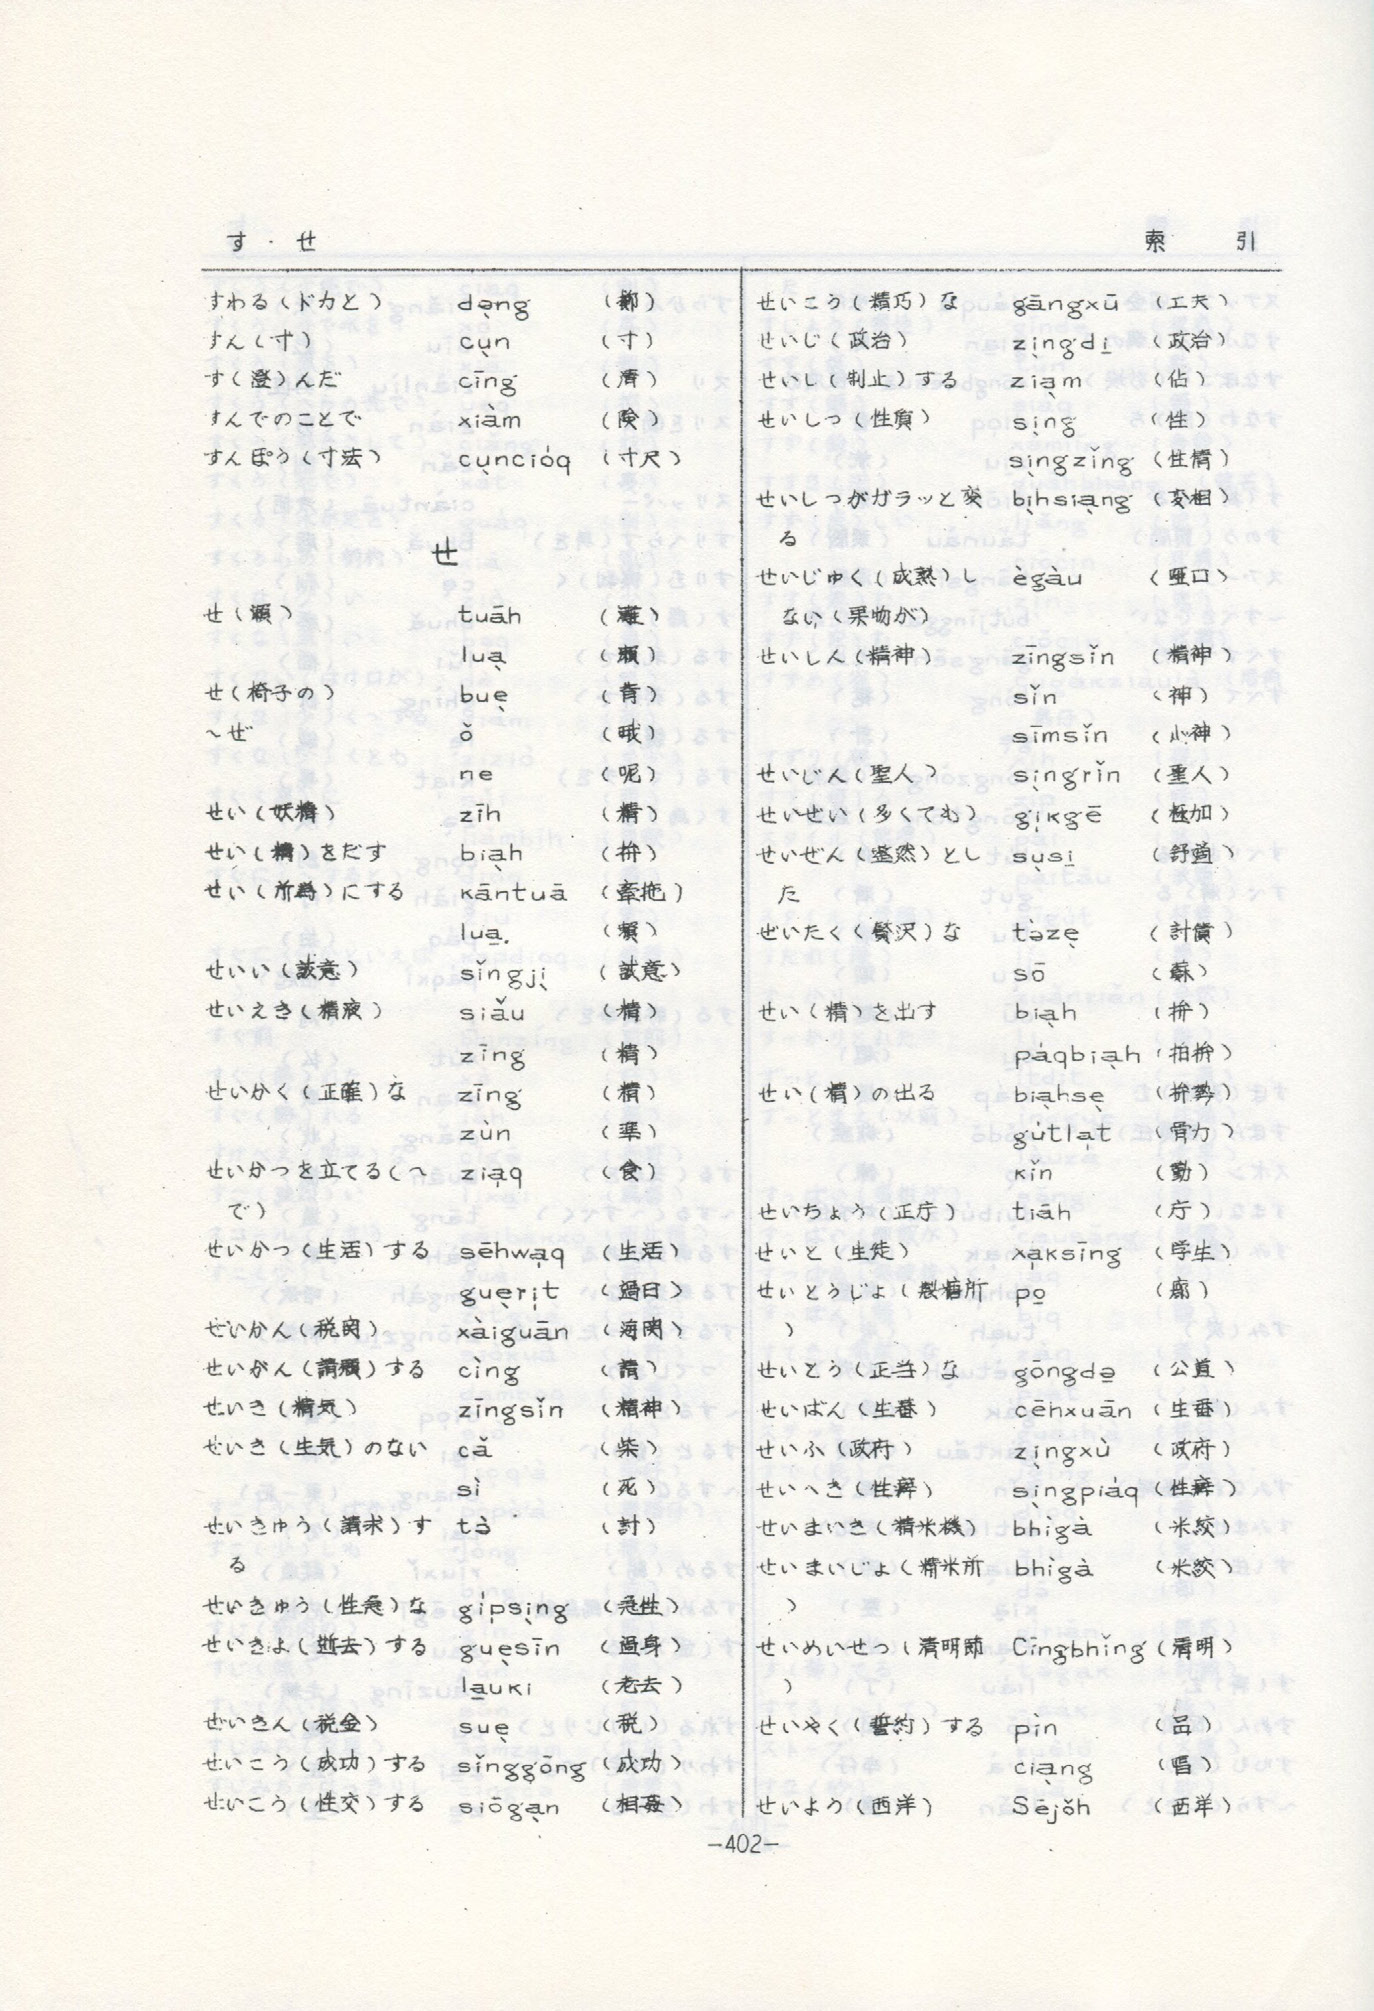 す・せ
索 引
すわる(ドカと) də̣ng (擲)
すん(寸) cụn (寸)
す(澄)んだ cīng (清)
すんでのことで xiàm (険)
すんぽう(寸法) cụnció̍q (寸尺)
せ
せ(瀬) tuāh (灘)
luạ (瀬)
せ(椅子の) buẹ (背)
～ぜ ǒ (哦)
ne (呢)
せい(妖精) zīh (精)
せい(精)をだす biạh (拚)
せい(所為)にする kāntuā (牽拖)
lua̱ (頼)
せいい(誠意) sǐngjị (誠意)
せいえき(精液) siǎu (精)
zīng (精)
せいかく(正確)な zīng (精)
zùn (準)
せいかつを立てる(～ ziạq (食)
で)
せいかつ(生活)する sēhwạq (生活)
guẹrịt (過日)
ぜいかん(税関) xàiguān (海関)
せいがん(請願)する cìng (請)
せいき(精気) zīngsǐn (精神)
せいき(生気)のない cǎ (柴)
sì (死)
せいきゅう(請求)す tə̀ (討)
る
せいきゅう(性急)な gi̍psịng (急性)
せいきよ(逝去)する guẹsīn (過身)
la̱uki (老去)
ぜいきん(税金) suẹ (税)
せいこう(成功)する sǐnggōng (成功)
せいこう(性交)する siōgạn (相姦)
せいこう(精巧)な gāngxū (工夫)
せいじ(政治) zịngdi̱ (政治)
せいし(制止)する ziạm (佔)
せいしつ(性質) sịng (性)
sịngzǐng (性情)
せいしつがガラッと変 bịhsiạng (変相)
る
せいじゅく(成熟)し ègàu (啞口)
ない(果物が)
せいしん(精神) zīngsǐn (精神)
sǐn (神)
sīmsǐn (心神)
せいじん(聖人) sịngrǐn (聖人)
せいぜい(多くても) gịkgē (極加)
せいぜん(整然)とし sụsi̱ (舒適)
た
ぜいたく(贅沢)な təzẹ
sō (蘇)
せい(精)を出す biạh (拚)
pa̍qbiạh (拍拚)
せい(精)の出る biạhsẹ (拚勢)
gu̍tlạt (骨力)
kǐn (勤)
せいちょう(正庁) tiāh (庁)
せいと(生徒) xạksīng (学生)
せいとうじょ(製糖所 po̱ (廍)
)
せいとう(正当)な gōngdə̱ (公道)
せいばん(生番) cēhxuān (生番)
せいふ(政府) zịngxù (政府)
せいへき(性癖) sịngpia̍q (性癖)
せいまいき(精米機) bhìgà (米絞)
せいまいじょ(精米所 bhìgà (米絞)
)
せいめいせつ(清明節 Cīngbhǐng (清明)
)
せいやく(誓約)する pìn (品)
ciạng (唱)
せいよう(西洋) Sējǒh (西洋)
—402—